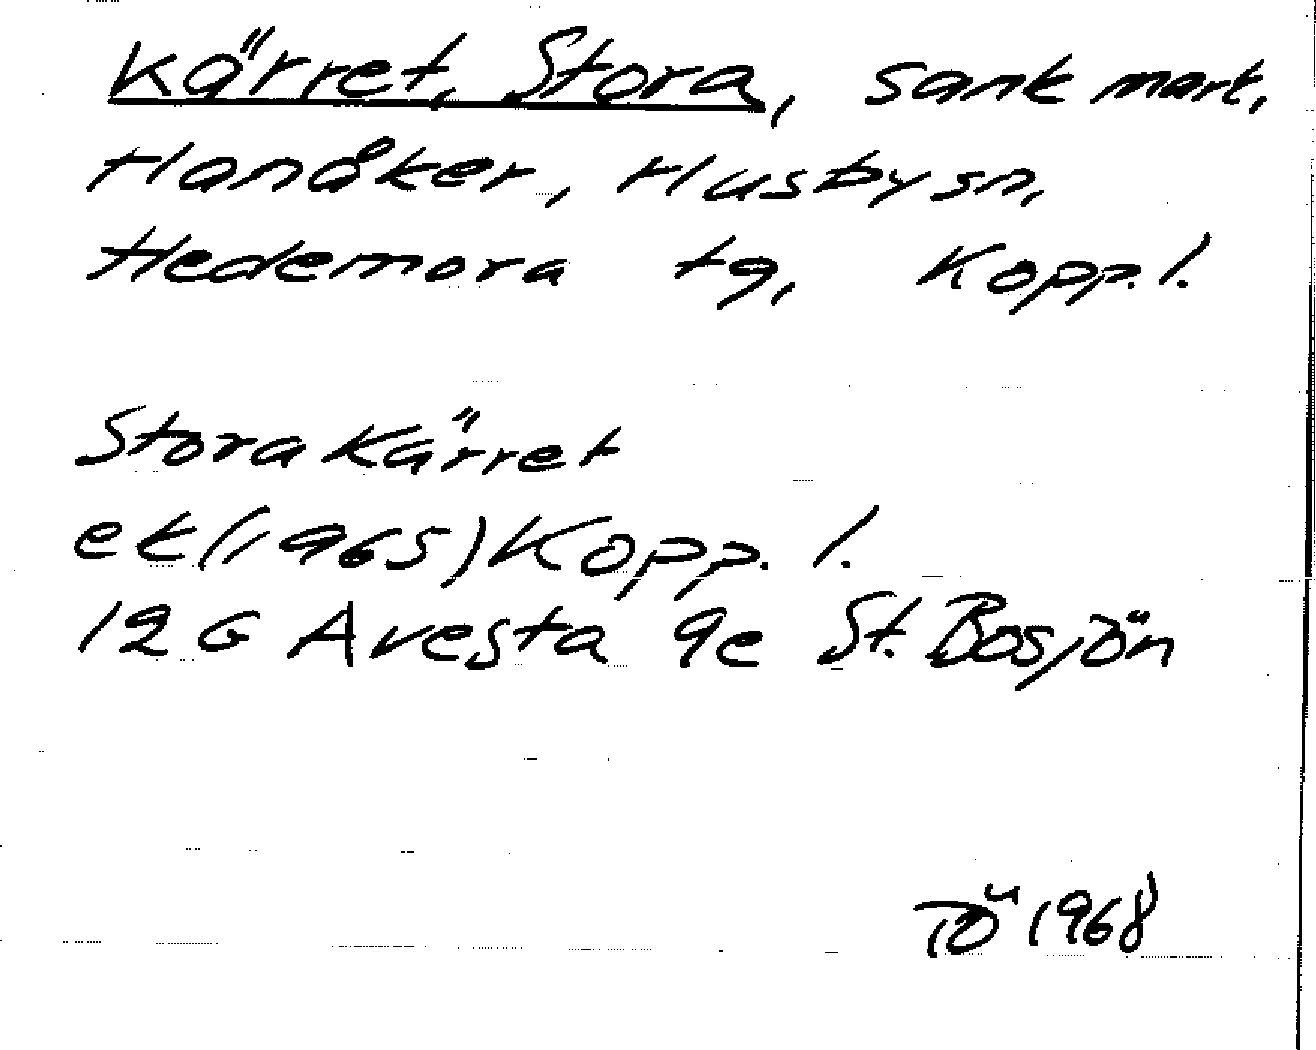 Kärret, Stora, sank mark,
Hanåker, Husby sn,
Hedemora tg, Kopp. l.
Stora Kärret
ek (1965) Kopp. l.
12 G Avesta 9e St. Bosjön
TÖ 1968